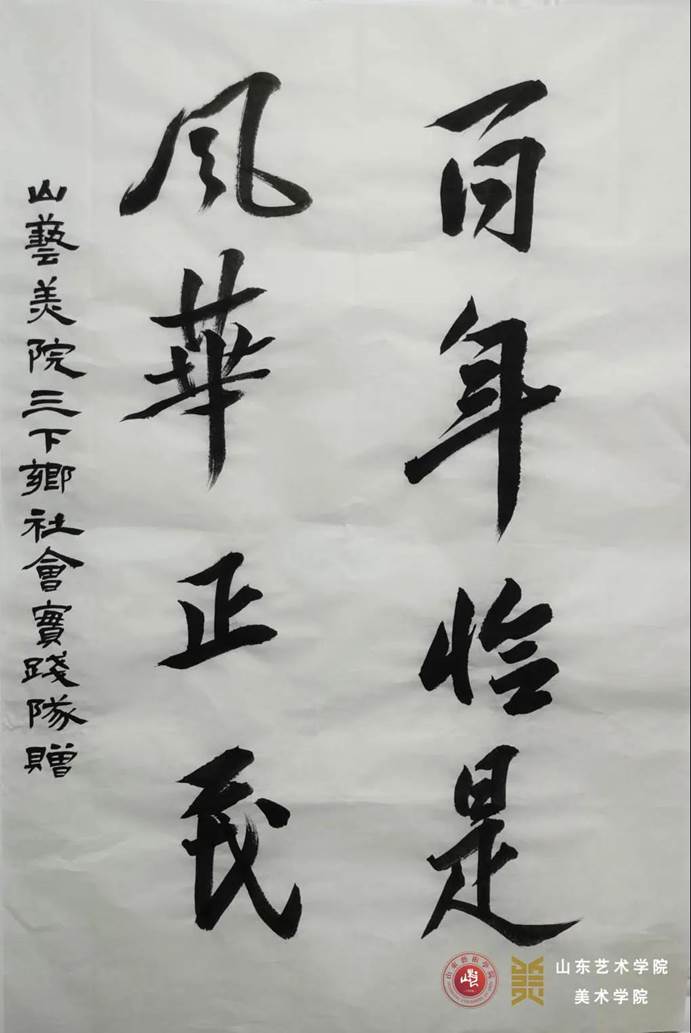 百年恰是
風華正茂
山藝美院三下鄉社會實踐隊贈
山东艺术学院
美术学院